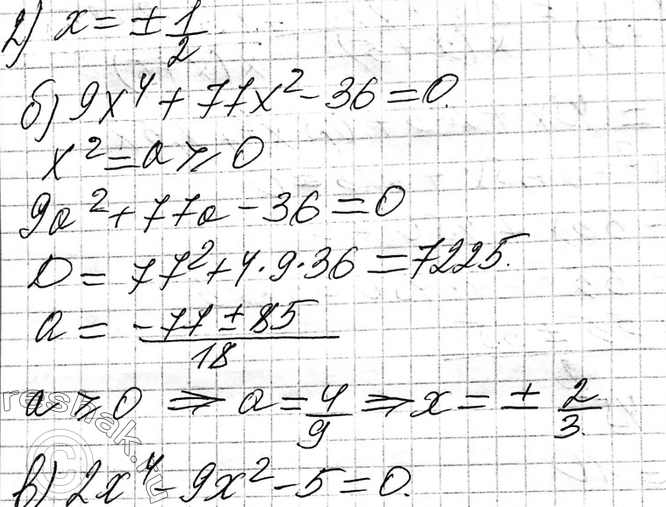 2) x = ± 1/2
б) 9x⁴ + 77x² - 36 = 0.
x² = a ⩾ 0
9a² + 77a - 36 = 0
D = 77² + 4·9·36 = 7225.
a = (-77 ± 85)/18
a ⩾ 0 ⇒ a = 4/9 ⇒ x = ± 2/3.
в) 2x⁴ - 9x² - 5 = 0.
reshak.ru